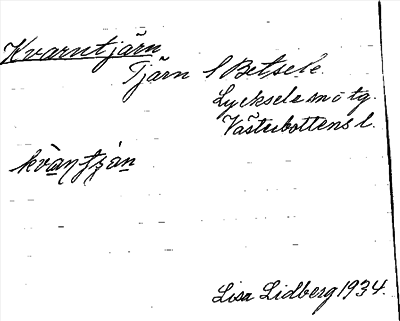 Kvarntjärn
Tjärn l Betsele.
Lycksele m o tg.
Västerbottens l.
kvàn̲tjàn̲
Lisa Lidberg 1934.